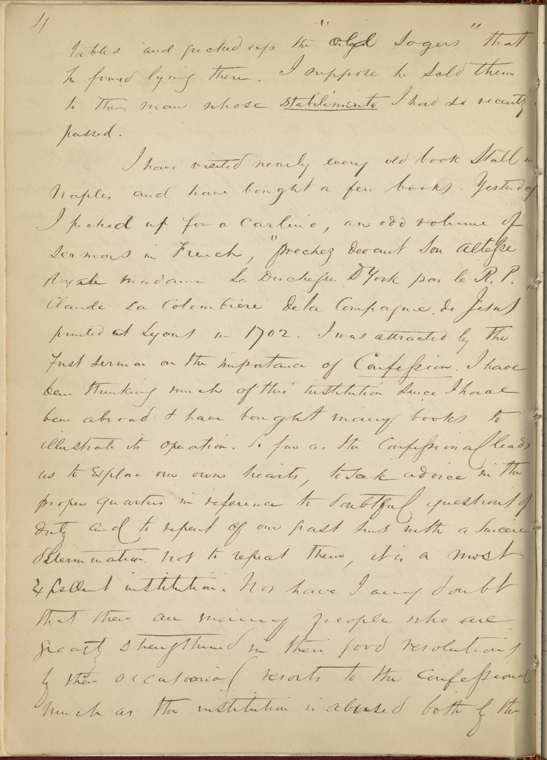 4
tables and picked up the "old sogers" that
he found lying there. I suppose he sold them
to the man whose stabilimento I had so recently
passed.
I have visited nearly every old book stall in
Naples and have bought a few books. Yesterday
I picked up for a carlino, an odd volume of
Sermons in French, "prechez devant Son Altesse
Royale madame La Duchesse D'York par le R. P.
Claude La Colombiere de la Compagnie de Jesus
printed at Lyons in 1702. I was attracted by the
first sermon on the importance of Confession. I have
been thinking much of this institution since I have
been abroad & have bought many books to
illustrate its operation. So far as the Confessional leads
us to explore our own hearts, to seek advice in the
proper quarter in reference to doubtful questions of
duty and to repent of our past sins with a sincere
determination not to repeat them, it is a most
excellent institution. Nor have I any doubt
that there are many people who are
greatly strengthened in their good resolutions
by their occasional resorts to the confessional
much as the institution is abused both by the